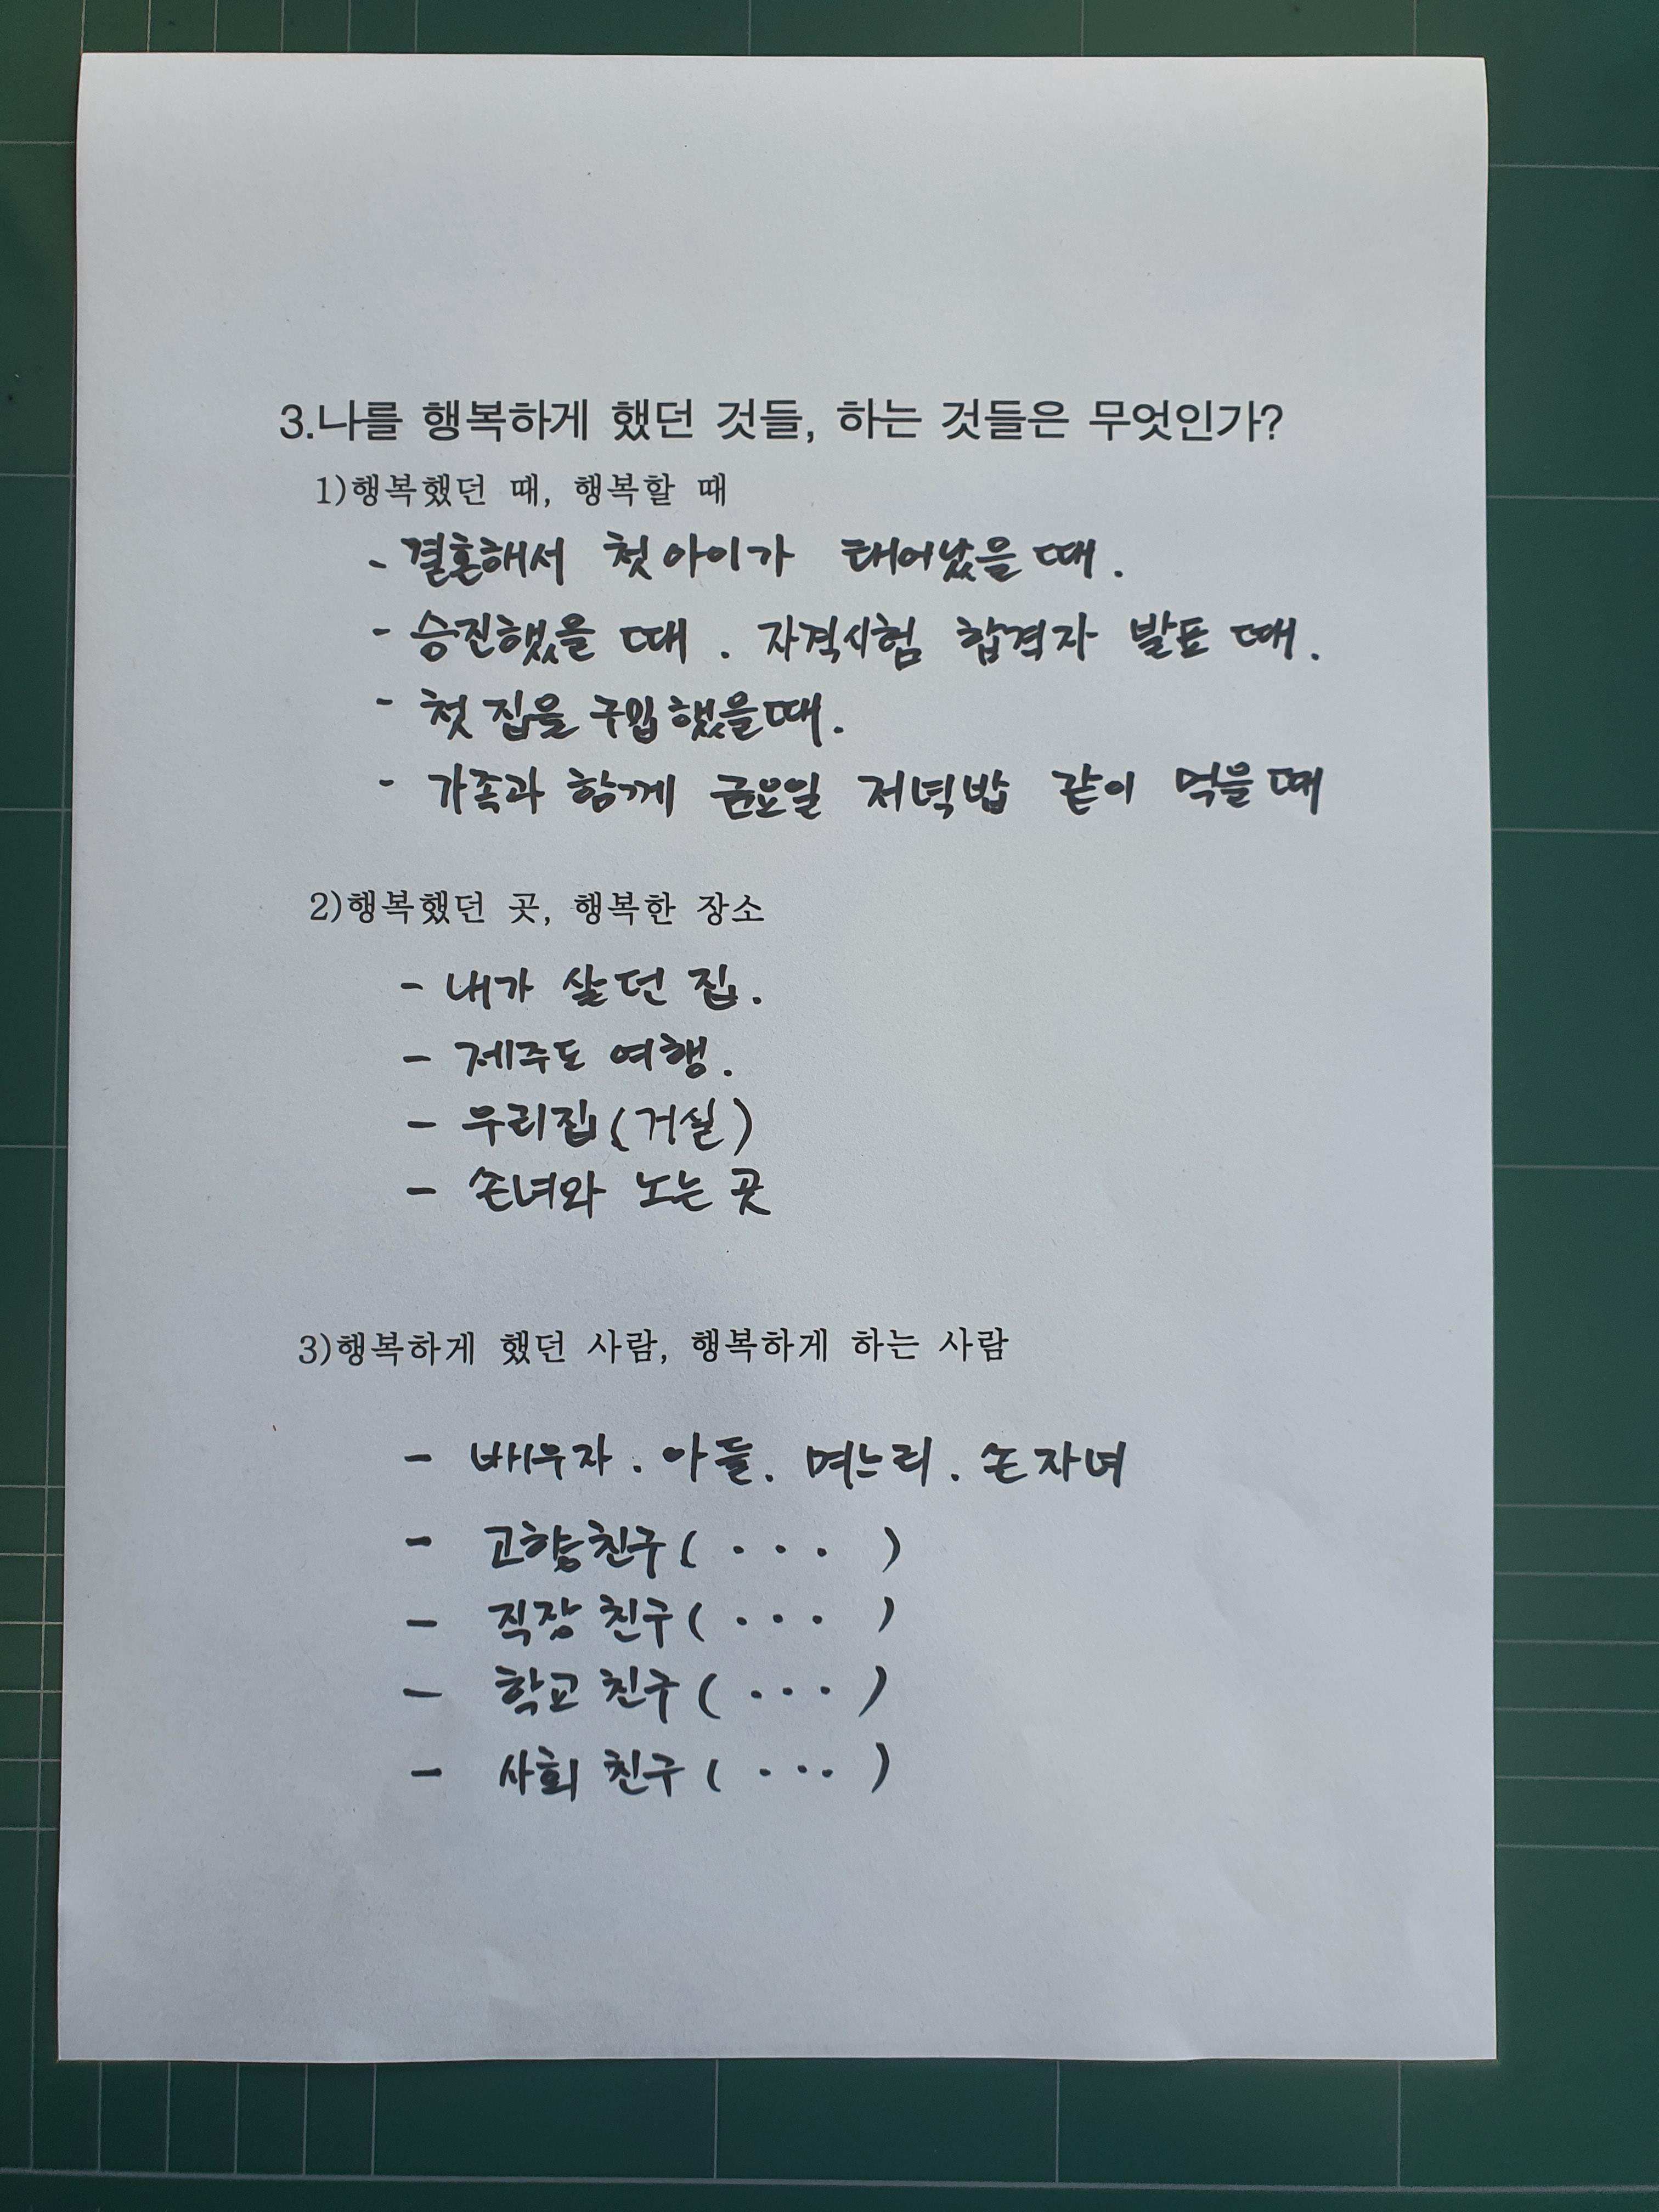 3.나를 행복하게 했던 것들, 하는 것들은 무엇인가?
1)행복했던 때, 행복할 때
- 결혼해서 첫 아이가 태어났을 때.
- 승진했을 때. 자격시험 합격자 발표 때.
- 첫 집을 구입했을 때.
- 가족과 함께 금요일 저녁밥 같이 먹을 때
2)행복했던 곳, 행복한 장소
- 내가 살던 집.
- 제주도 여행.
- 우리집(거실)
- 손녀와 노는 곳
3)행복하게 했던 사람, 행복하게 하는 사람
- 배우자. 아들. 며느리. 손자녀
- 고향친구( . . . )
- 직장 친구( . . . )
- 학교 친구( . . . )
- 사회 친구( . . . )